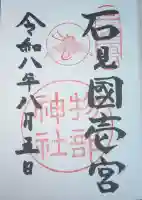 石見國壱宮
物部
神社
令和八年八月五日